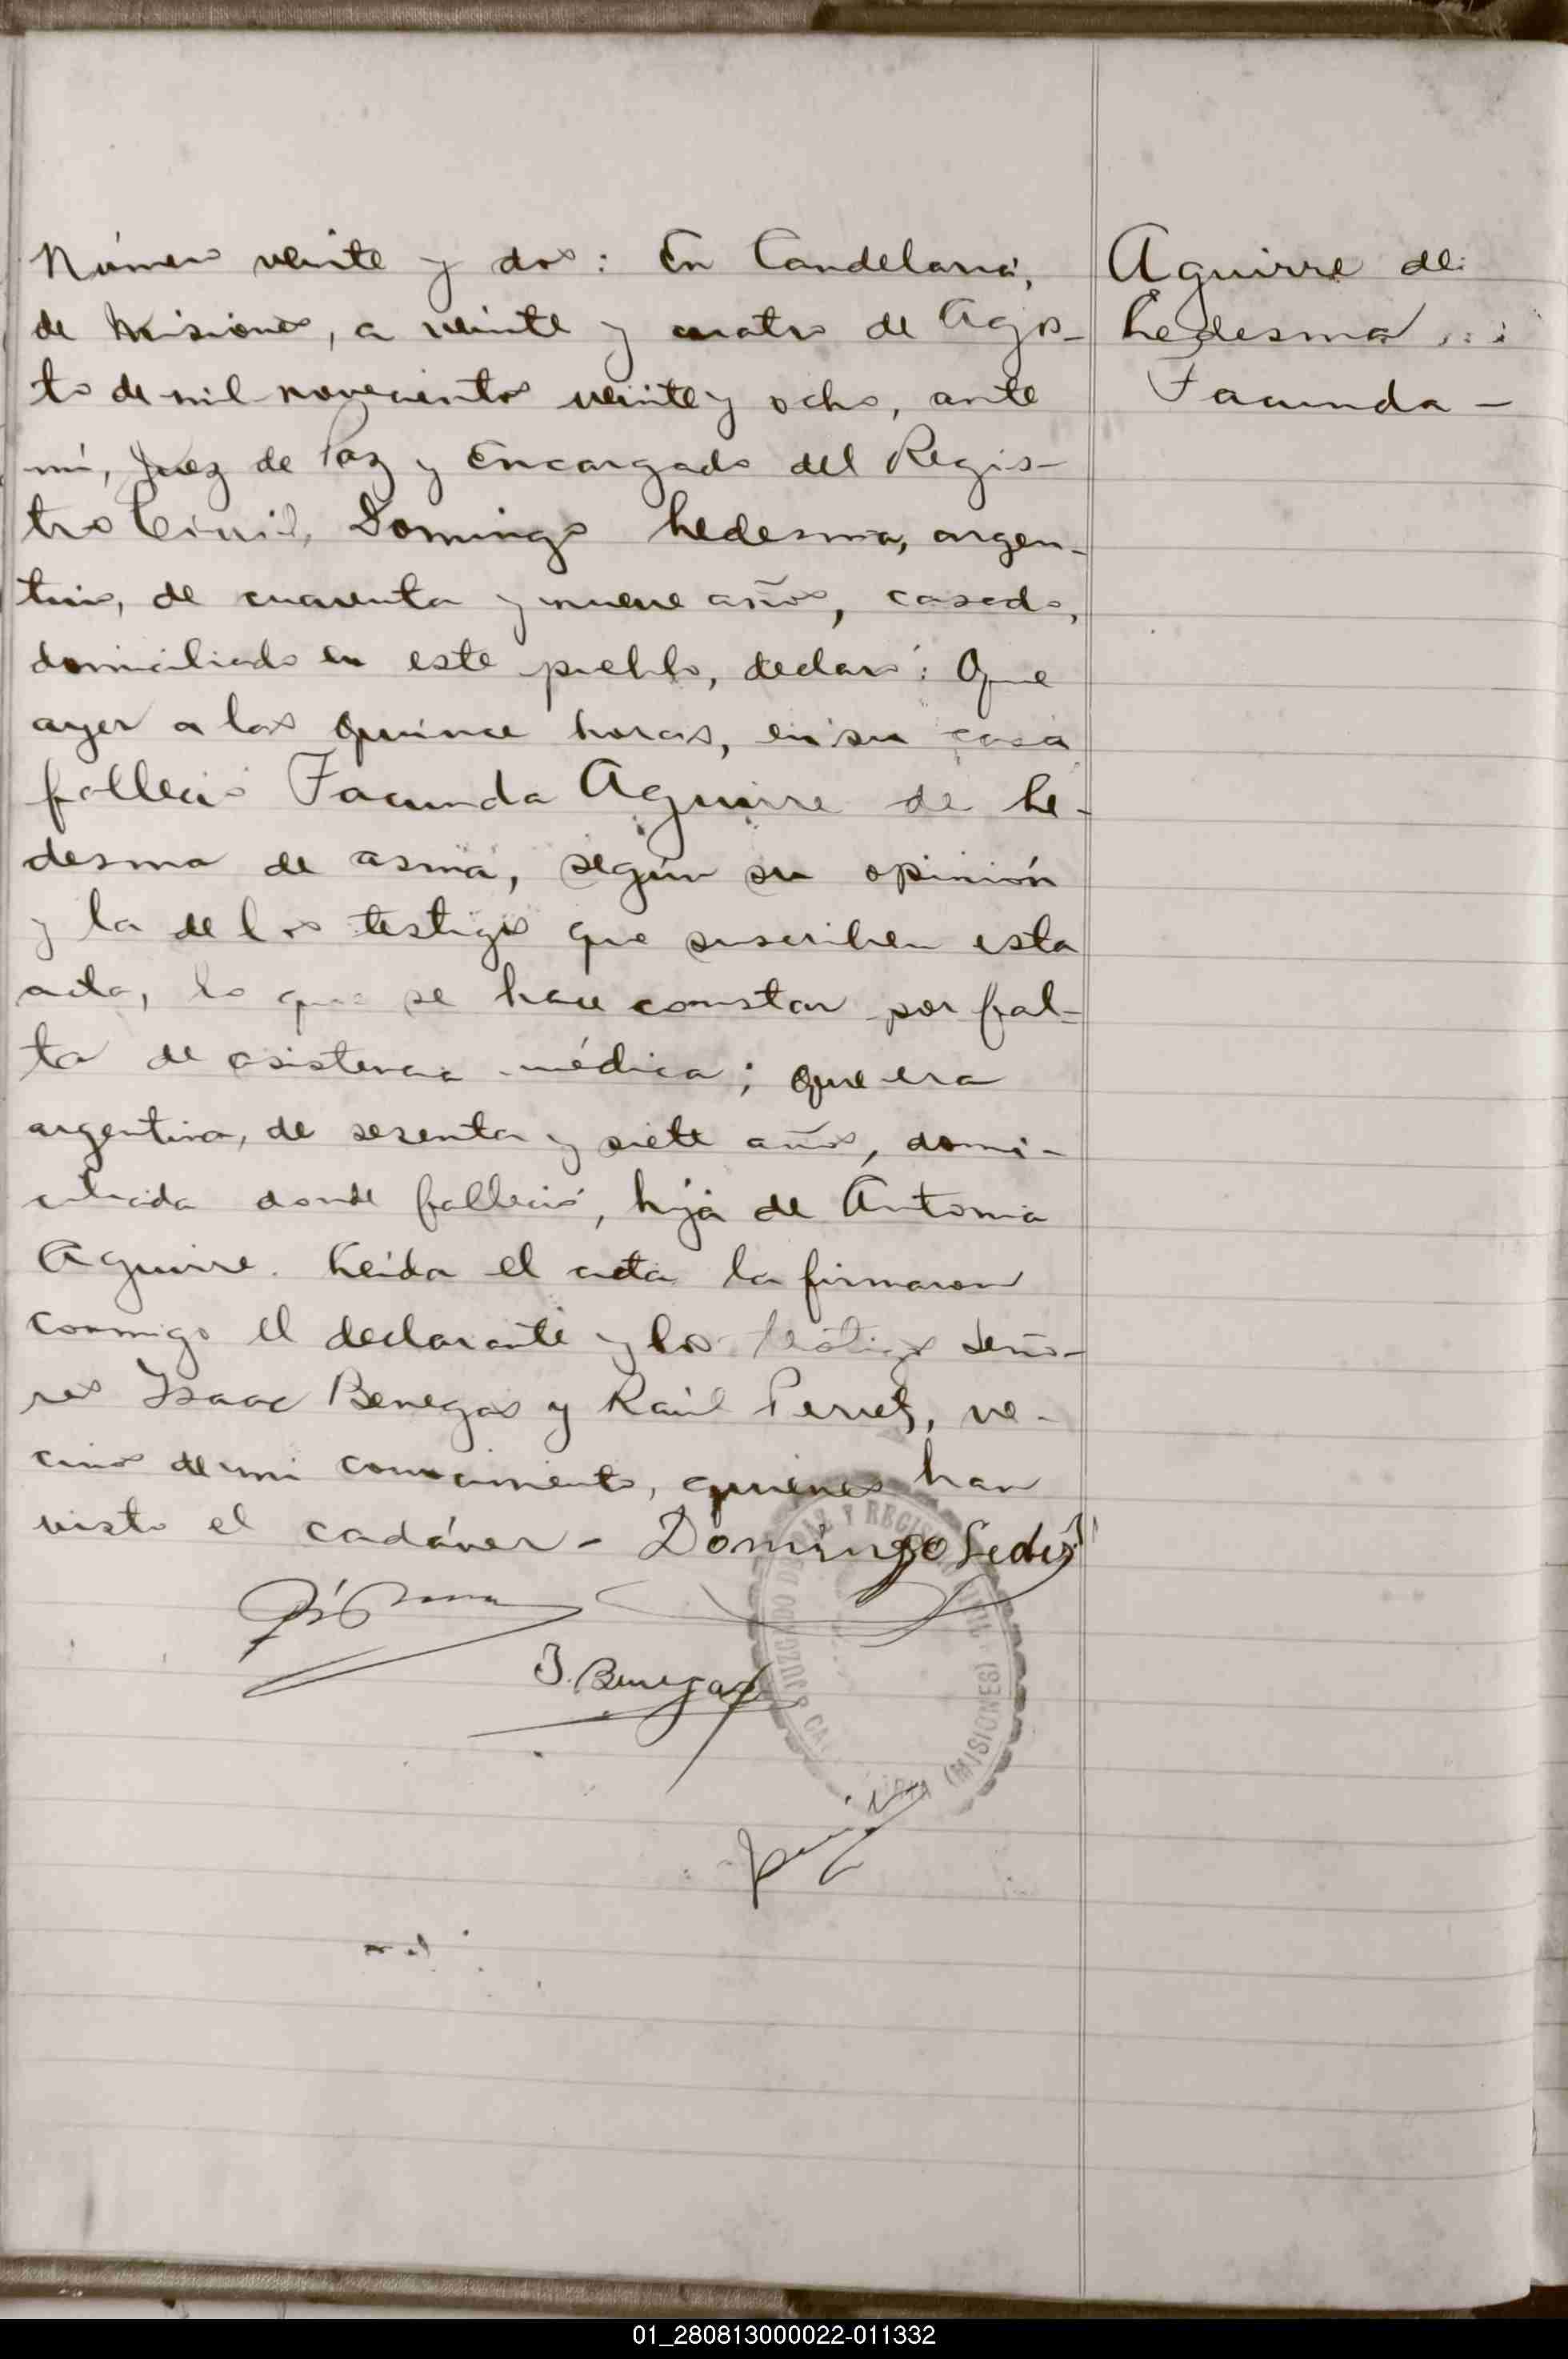 Número veinte y dos: En Candelaria,
de Misiones, a veinte y cuatro de Agos-
to de mil novecientos veinte y ocho, ante
mí, Juez de Paz y Encargado del Regis-
tro Civil, Domingo Ledesma, argen-
tino, de cuarenta y nueve años, casado,
domiciliado en este pueblo, declaró: Que
ayer a las quince horas, en su casa
falleció Facunda Aguirre de Le-
desma de asma, según su opinión
y la de los testigos que suscriben esta
acta, lo que se hace constar por fal-
ta de asistencia médica; que era
argentina, de sesenta y siete años, domi-
ciliada donde falleció, hija de Antonia
Aguirre. Leída el acta la firmaron
conmigo el declarante y los testigos Seño-
res Isaac Benegas y Raúl, ve-
cinos de mi conocimiento, quienes han
visto el cadáver - Domingo Ledes
I. Benegas
JUZGADO DE PAZ Y REGISTRO CIVIL
(MISIONES)
Aguirre de
Ledesma
Facunda -
01_280813000022-011332